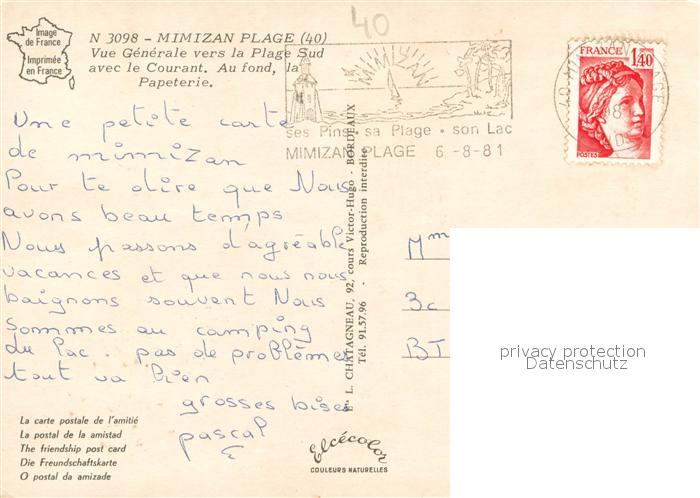 40
Image
de France
Imprimée
en France
N 3098 - MIMIZAN PLAGE (40)
Vue Générale vers la Plage Sud
avec le Courant. Au fond, la
Papeterie.
MIMIZAN
ses Pins · sa Plage · son Lac
MIMIZAN PLAGE 6-8-81
FRANCE
1,40
POSTES
Une petite carte
de mimizan
Pour te dire que Nous
avons beau temps
Nous passons d'agréable
vacances et que nous nous
baignons souvent Nous
sommes au camping
du Lac. pas de problème
tout va bien
grosses bises
pascal
Mme
3c
BT
L. CHATAGNEAU, 92, cours Victor-Hugo - BORDEAUX
Tél. 91.57.96 - Reproduction interdite
privacy protection
Datenschutz
La carte postale de l'amitié
La postal de la amistad
The friendship post card
Die Freundschaftskarte
O postal da amizade
Elcécolor
COULEURS NATURELLES